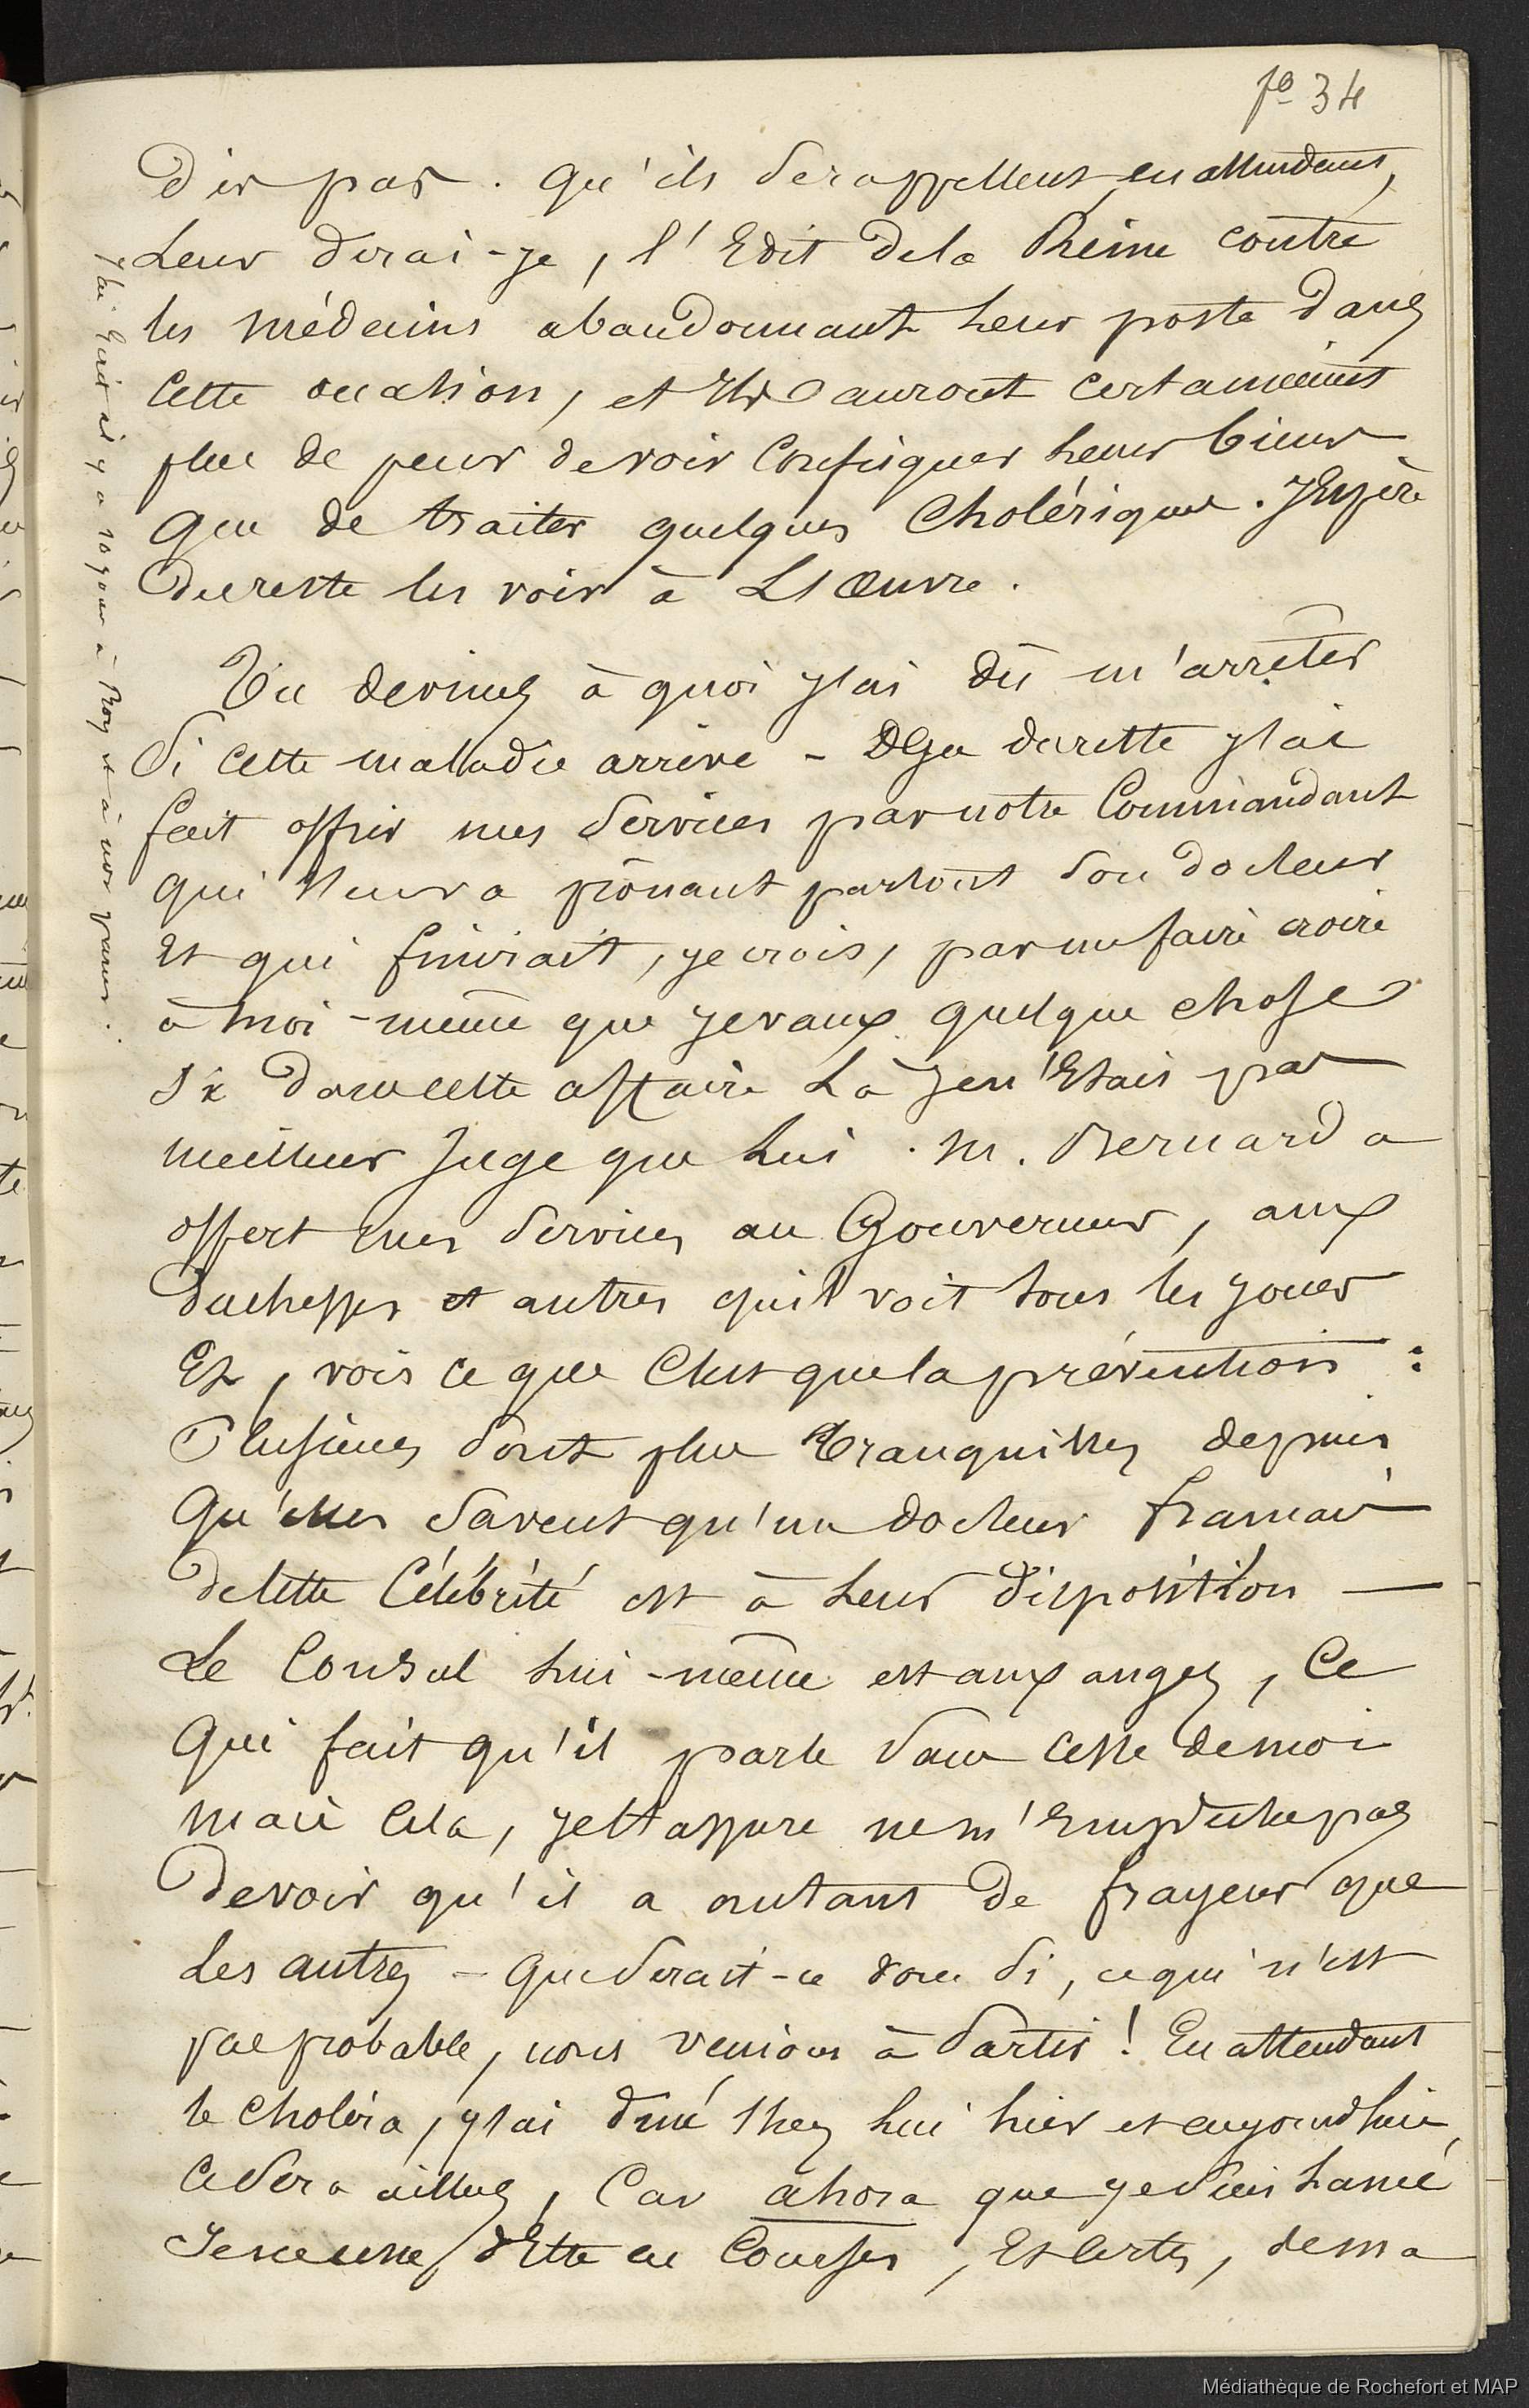 fo 34
dis pas. Qu'ils se rappellent, en attendant,
leur dirai-je, l'Edit de la Reine contre
les médecins abandonnant leur poste dans
cette occasion, et Ils auront certainement
plus de peur de voir confisquer leurs biens
que de traiter quelques Cholériques. J'Espère
du reste les voir à L'Œuvre.
Tu devines à quoi j'ai dû m'arrêter
Si cette maladie arrive - Deja du reste j'ai
fait offrir mes Services par notre Commandant
qui s'en va prônant partout son docteur
et qui finirait, je crois, par me faire croire
à moi-même que je vaux quelque chose
Si dans cette affaire là je n'Etais pas
meilleur Juge que lui. M. Bernard a
offert mes Services au Gouverneur, aux
duchesses et autres qu'il voit tous les jours
Et, vois ce que C'est que la prévention :
Plusieurs sont plus tranquilles depuis
Qu'elles savent qu'un docteur français
de cette Célébrité est à leur disposition —
Le Consul lui-même est aux anges, Ce
Qui fait qu'il parle sans cesse de moi
mais Cela, je t'assure ne m'Empêche pas
de voir qu'il a autant de frayeur que
les autres - que serait-ce donc si, ce qui n'est
pas probable, nous venions à partir ! En attendant
le Choléra, j'ai diné chez lui hier et aujourd'hui,
Ce sera ailleurs, Car ahora que je suis lancé
Je ne cesse d'Etre en Courses, Et certes, de ma
J'ai Ecrit il y a 10 jours à Roy et à nos parens.